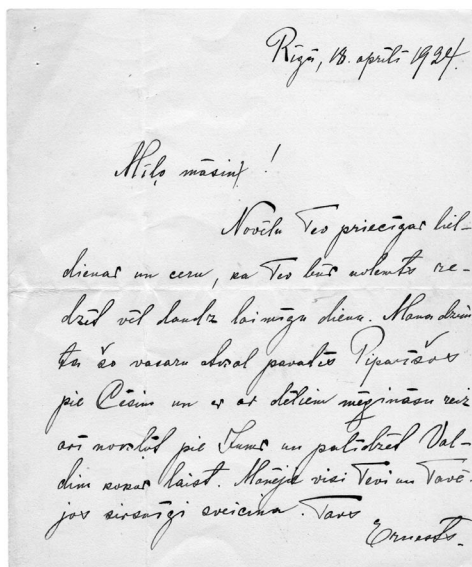 Rīgā, 18. aprīlī 1924.
Mīļo māsiņ!
Novēlu Tev priecīgas liel-
dienas un ceru, ka Tev būs nolemts re-
dzēt vēl daudz laimīgu dienu. Mana dzim-
ta šo vasaru atkal pavadīs Piparišķos
pie Cēsīm un es ar dēliem mēģināšu reiz
arī novelēt pie Jums un palīdzēt Val-
dim kokas laist. Manējie visi Tevi un Tavē-
jos sirsnīgi sveicina. Tavs
Ernests.